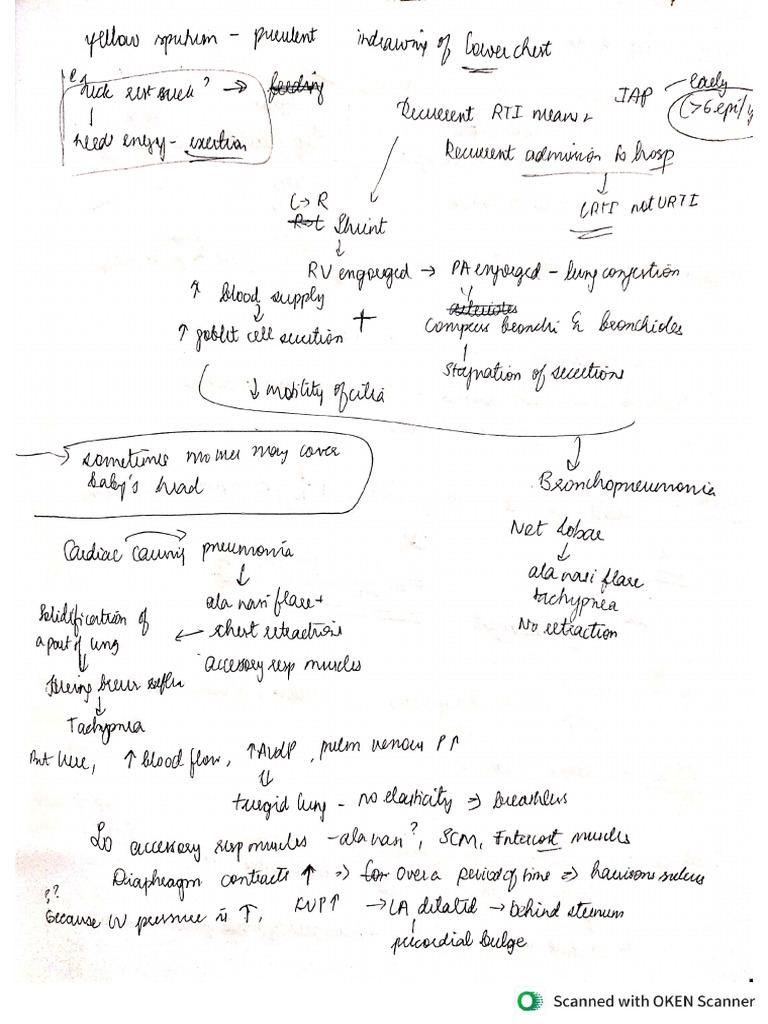 yellow sputum - purulent
indrawing of lower chest
"suck rest suck" → feeding
need energy - exertion
Recurrent RTI means
IAP early
(>6 epi/y
Recurrent admission to hosp
LRTI not URTI
L→R
R→L Shunt
RV engorged → PA engorged - lung congestion
↑ blood supply
arterioles
↑ goblet cell secretion + compress bronchi & bronchioles
stagnation of secretions
↓ motility of cilia
→ sometimes mother may cover
baby's head
Bronchopneumonia
Not Lobar
ala nasi flare
tachypnea
No retraction
Cardiac causing pneumonia
ala nasi flare +
chest retractions
accessory resp muscles
Solidification of
a part of lung
Hering breur reflex
Tachypnea
But here, ↑ blood flow, ↑ , pulm venous P↑
turgid lung - no elasticity ⇒ breathless
↳ accessory resp muscles - ala nasi?, SCM, Intercost muscles
Diaphragm contracts ↑ ⇒ for over a period of time ⇒ harrisons sulcus
??
Because LV pressure is ↑, ↑ → LA dilated → behind sternum
precordial bulge
Scanned with OKEN Scanner